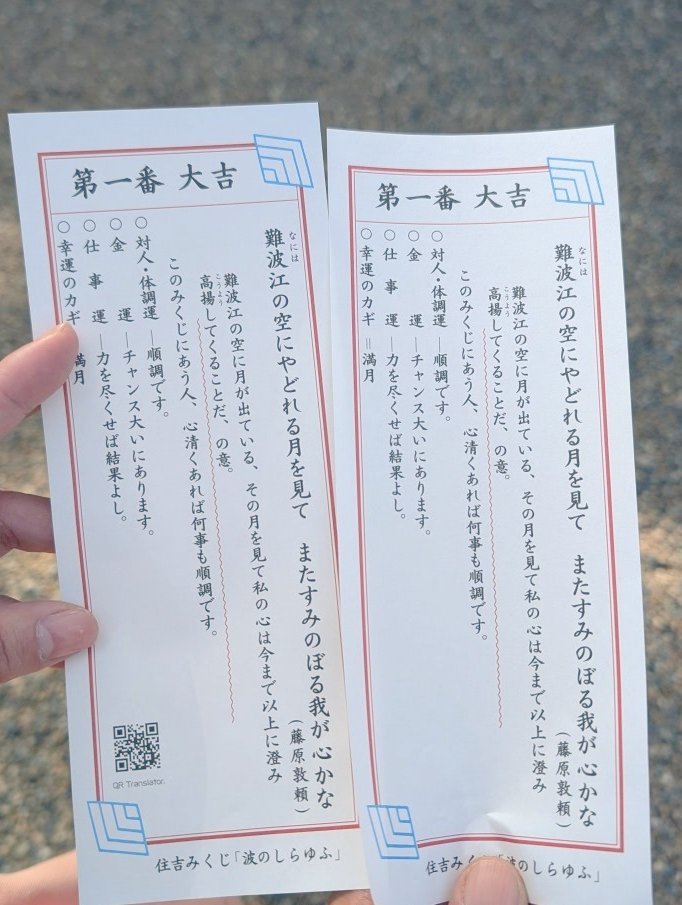 第一番 大吉
難波江の空にやどれる月を見て またすみのぼる我が心かな
なには
(藤原敦頼)
難波江の空に月が出ている、その月を見て私の心は今まで以上に澄み
高揚してくることだ、の意。
こうよう
このみくじにあう人、心清くあれば何事も順調です。
○対人・体調運―順調です。
○金運―チャンス大いにあります。
○仕事運―力を尽くせば結果よし。
○幸運のカギ 満月
QR Translator.
住吉みくじ「波のしらゆふ」
第一番 大吉
難波江の空にやどれる月を見て またすみのぼる我が心かな
なには
(藤原敦頼)
難波江の空に月が出ている、その月を見て私の心は今まで以上に澄み
高揚してくることだ、の意。
こうよう
このみくじにあう人、心清くあれば何事も順調です。
○対人・体調運―順調です。
○金運―チャンス大いにあります。
○仕事運―力を尽くせば結果よし。
○幸運のカギ=満月
住吉みくじ「波のしらゆふ」